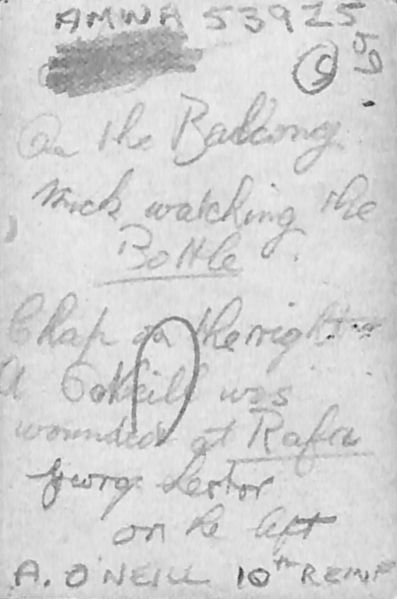 AMWA 53925
On the Balcony
Mick watching the
Bottle
Chap on the right
A O'Neill was
wounded at Rafa
Lestor
on he left
A. O'NEILL 10th REINF